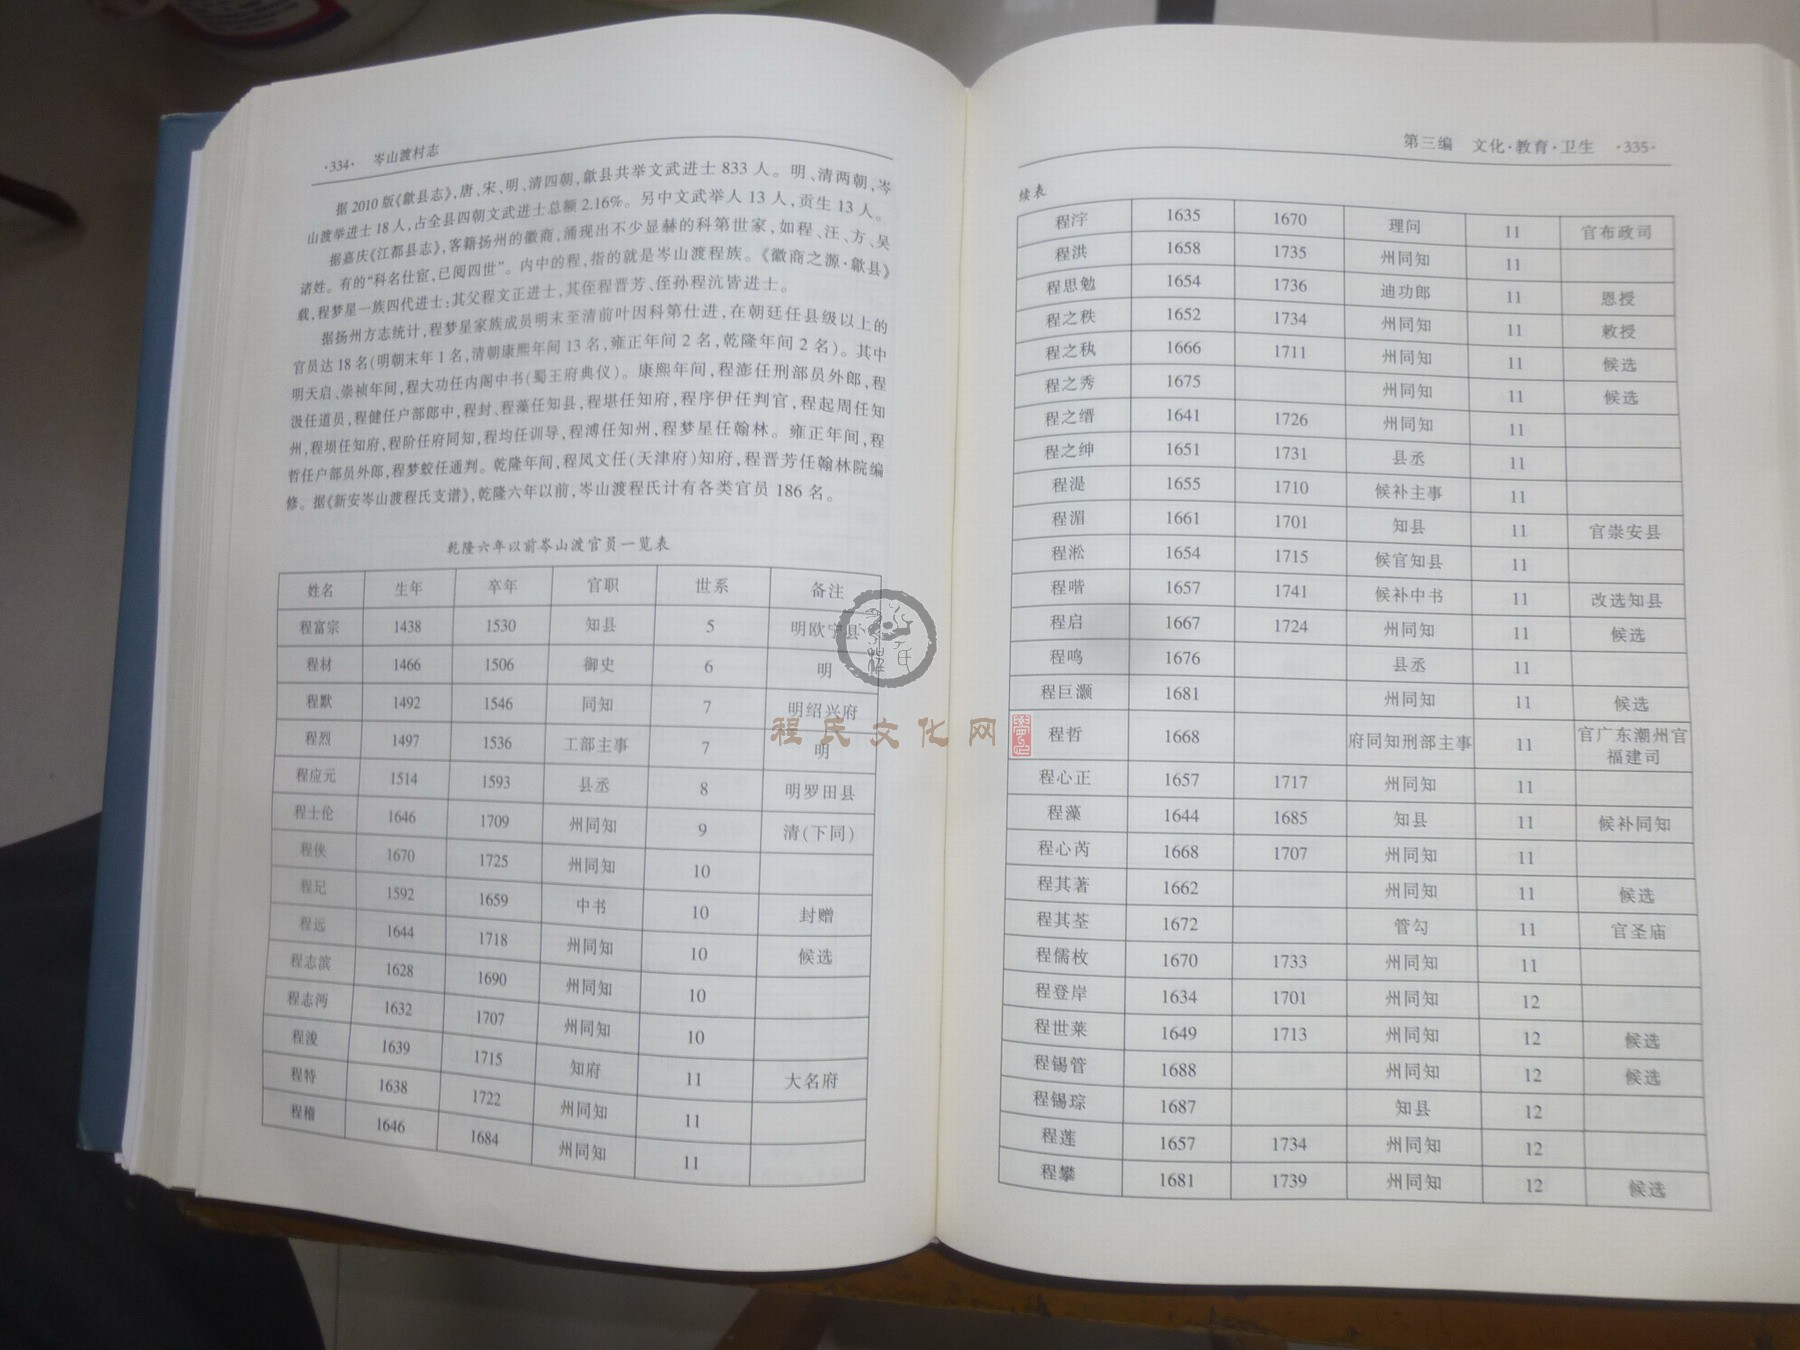 ·334· 岑山渡村志
据2010版《歙县志》,唐、宋、明、清四朝,歙县共举文武进士833人。明、清两朝,岑
山渡举进士18人,占全县四朝文武进士总额2.16%。另中文武举人13人,贡生13人。
据嘉庆《江都县志》,客籍扬州的徽商,涌现出不少显赫的科第世家,如程、汪、方、吴
诸姓。有的“科名仕宦,已阅四世”。内中的程,指的就是岑山渡程族。《徽商之源·歙县》
载,程梦星一族四代进士:其父程文正进士,其侄程晋芳、侄孙程沆皆进士。
据扬州方志统计,程梦星家族成员明末至清前叶因科第仕进,在朝廷任县级以上的
官员达18名(明朝末年1名,清朝康熙年间13名,雍正年间2名,乾隆年间2名)。其中
明天启、崇祯年间,程大功任内阁中书(蜀王府典仪)。康熙年间,程澎任刑部员外郎,程
汲任道员,程健任户部郎中,程封、程藻任知县,程堪任知府,程序伊任判官,程起周任知
州,程埙任知府,程阶任府同知,程均任训导,程溥任知州,程梦星任翰林。雍正年间,程
哲任户部员外郎,程梦蛟任通判。乾隆年间,程凤文任(天津府)知府,程晋芳任翰林院编
修。据《新安岑山渡程氏支谱》,乾隆六年以前,岑山渡程氏计有各类官员186名。
乾隆六年以前岑山渡官员一览表
姓名 生年 卒年 官职 世系 备注
程富宗 1438 1530 知县 5 明欧宁县
程材 1466 1506 御史 6 明
程默 1492 1546 同知 7 明绍兴府
程烈 1497 1536 工部主事 7 明
程应元 1514 1593 县丞 8 明罗田县
程士伦 1646 1709 州同知 9 清(下同)
程侠 1670 1725 州同知 10
1592 1659 中书 10 封赠
程远 1644 1718 州同知 10 候选
程志滨 1628 1690 州同知 10
程志沔 1632 1707 州同知 10
程浚 1639 1715 知府 11 大名府
程特 1638 1722 州同知 11
程稽 1646 1684 州同知 11
第三编 文化·教育·卫生 ·335·
续表
程浡 1635 1670 理问 11 官布政司
程洪 1658 1735 州同知 11
程思勉 1654 1736 迪功郎 11 恩授
程之秩 1652 1734 州同知 11 敕授
程之秇 1666 1711 州同知 11 候选
程之秀 1675 州同知 11 候选
程之缙 1641 1726 州同知 11
程之绅 1651 1731 县丞 11
程湜 1655 1710 候补主事 11
程湄 1661 1701 知县 11 官崇安县
程淞 1654 1715 候官知县 11
程喈 1657 1741 候补中书 11 改选知县
程启 1667 1724 州同知 11 候选
程鸣 1676 县丞 11
程巨灏 1681 州同知 11 候选
程哲 1668 府同知刑部主事 11 官广东潮州官
福建司
程心正 1657 1717 州同知 11
程藻 1644 1685 知县 11 候补同知
程心芮 1668 1707 州同知 11
程其著 1662 州同知 11 候选
程其荃 1672 管勾 11 官圣庙
程儒枚 1670 1733 州同知 11
程登岸 1634 1701 州同知 12
程世莱 1649 1713 州同知 12 候选
程锡管 1688 州同知 12 候选
程锡琮 1687 知县 12
程莲 1657 1734 州同知 12
程攀 1681 1739 州同知 12 候选
程氏文化网